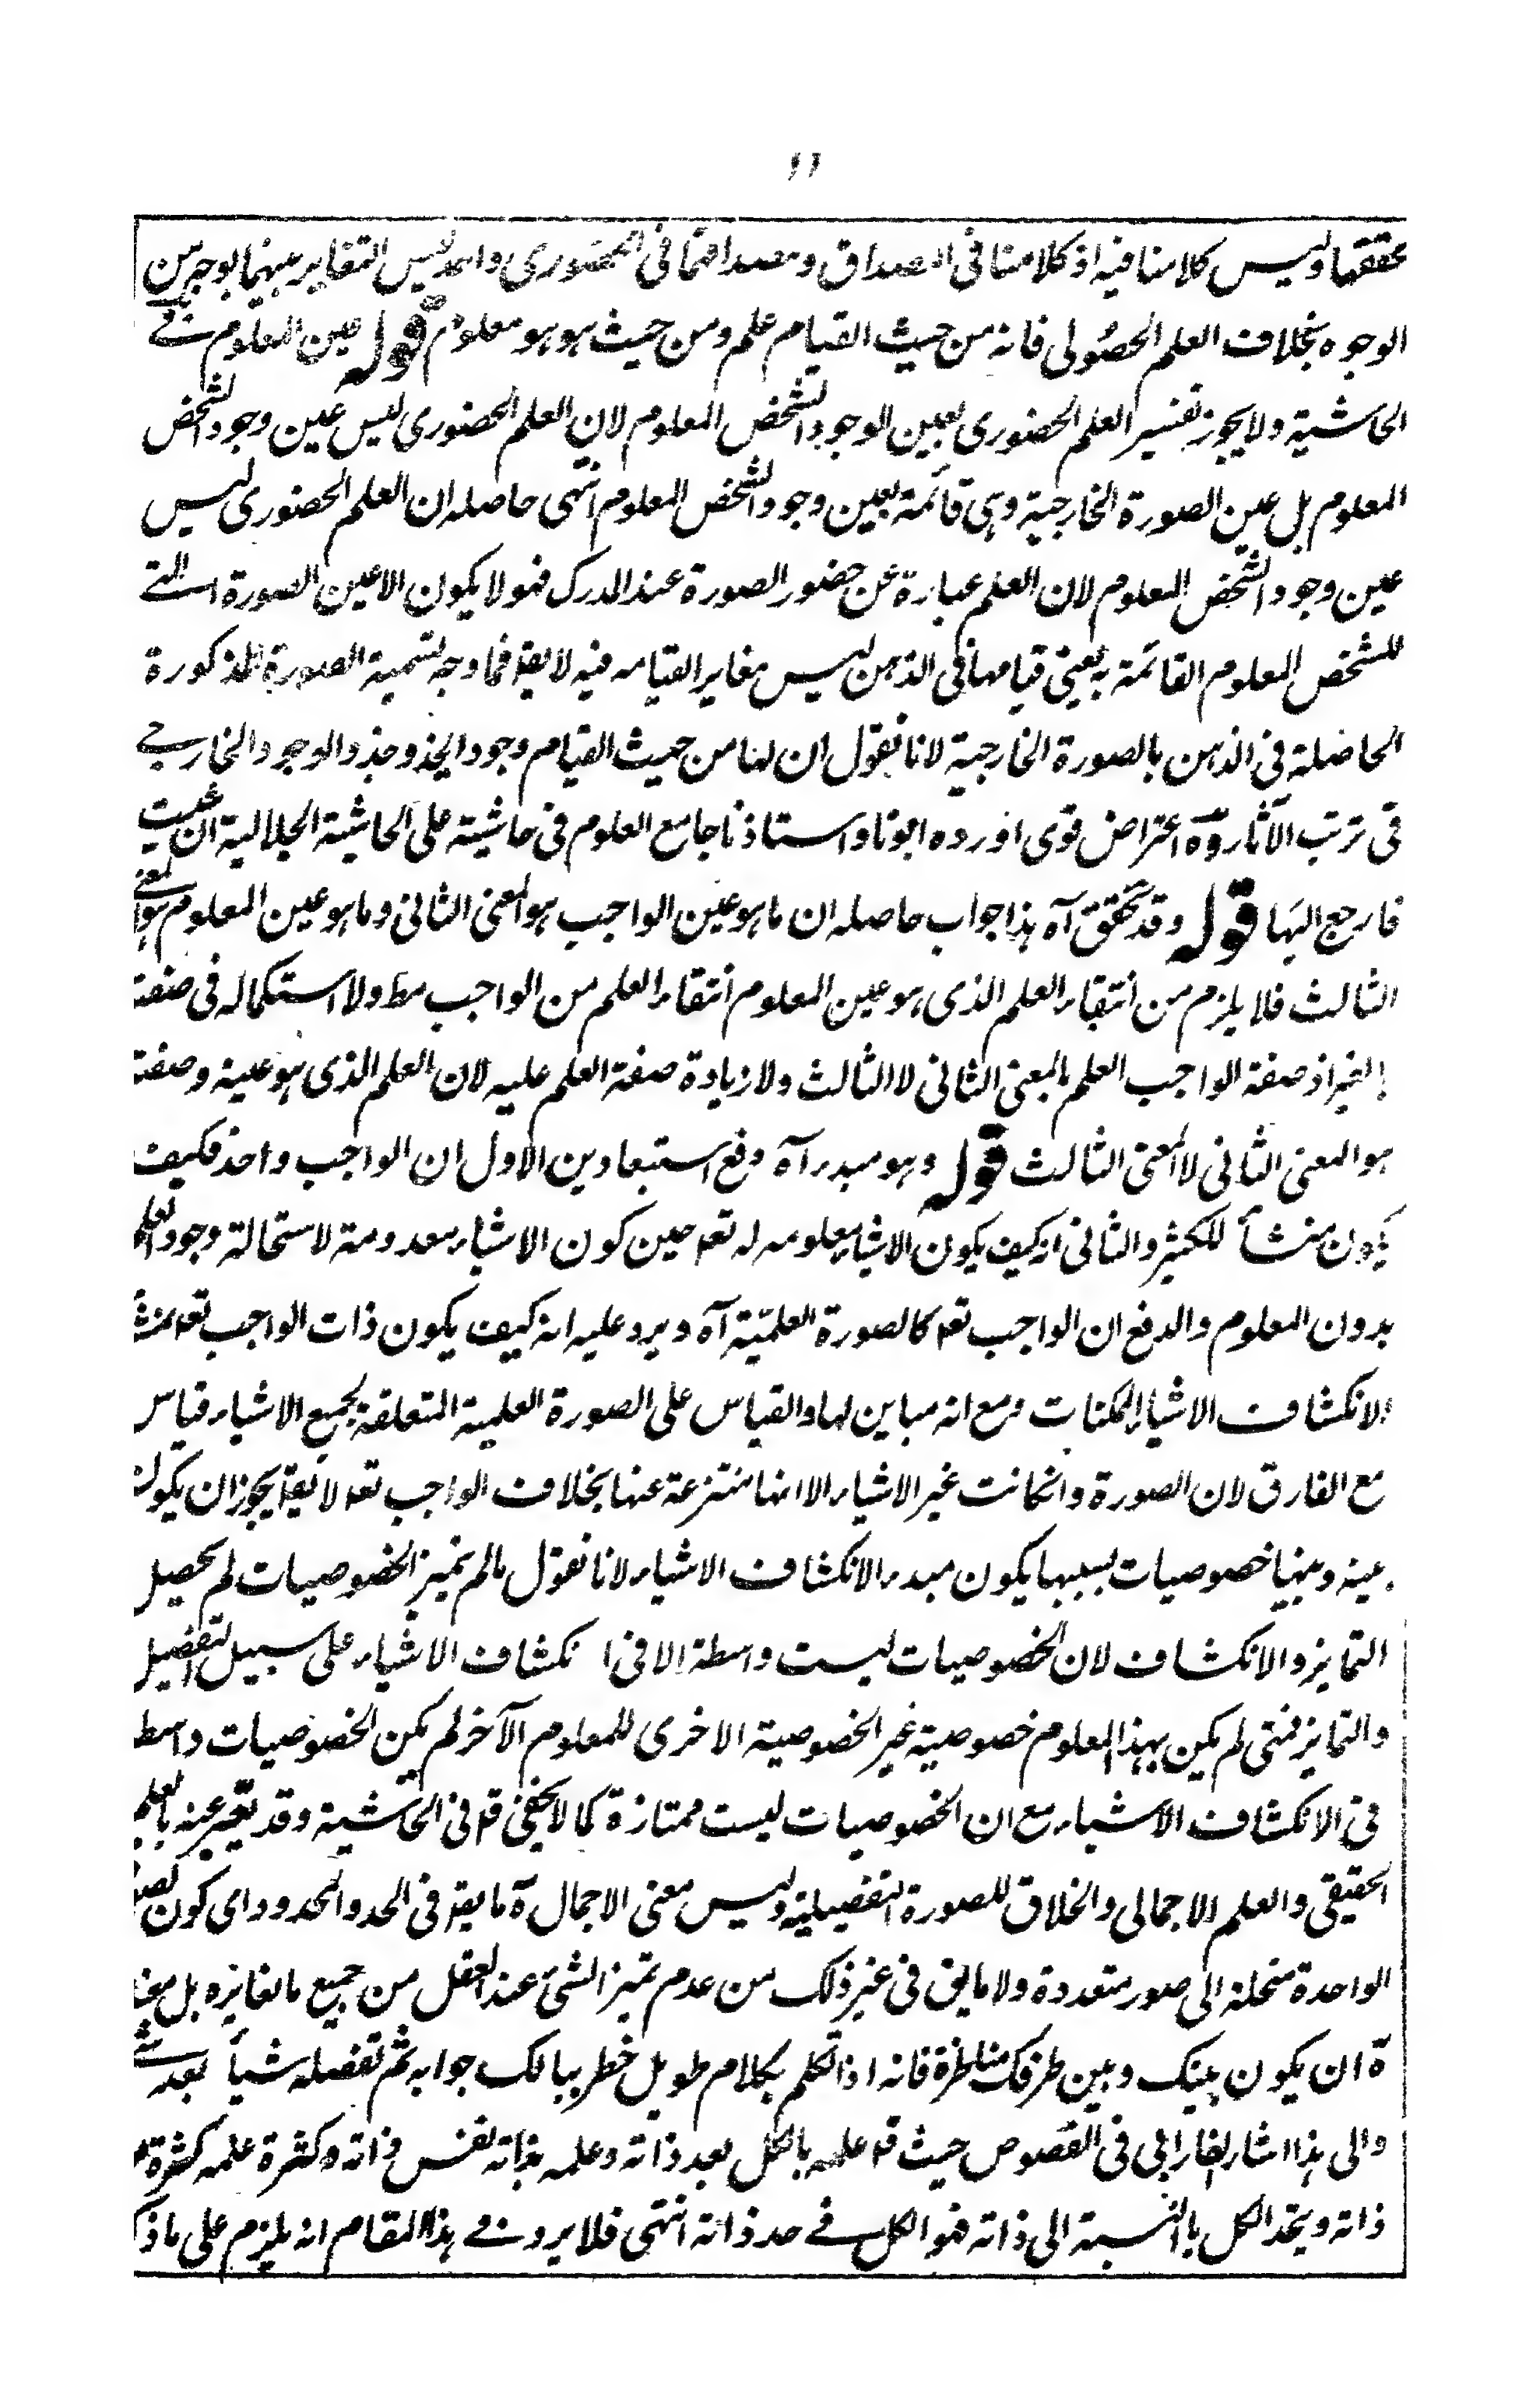 ١١
تحققها وليس كلامنا فيه اذ كلامنا فى المصداق ومصداقهما فى الحضورى واحد ليس التغاير بينهما بوجه من
الوجوه بخلاف العلم الحصولى فانه من حيث القيام علم ومن حيث هو هو معلوم قوله عين المعلوم فے
الحاشية ولا يجوز تفسير العلم الحضورى بعين الوجود الشخص المعلوم لان العلم الحضورى ليس عين وجود الشخص
المعلوم بل عين الصورة الخارجية وهى قائمة بعين وجود الشخص المعلوم انتهى حاصله ان العلم الحضورى ليس
عين وجود الشخص المعلوم لان العلم عبارة عن حضور الصورة عند المدرك فهو لا يكون الا عين الصورة التے
للشخص المعلوم القائمة به يعنى قيامها فى الذهن ليس مغاير القيامه فيه لا يقه فما وجه تسمية الصورة المذكورة
الحاضلة فى الذهن بالصورة الخارجية لانا نقول ان لها من حيث القيام وجود ايحذو حذو الوجود الخارجے
فى ترتب الآثار وآه اعتراض قوى اورده ابونا واستاذنا جامع العلوم فى حاشية على الحاشية الجلالية ان شئت
فارجع اليها قوله وقد تحقق آه هذا جواب حاصله ان ما هو عين الواجب هو المعنى الثانى وما هو عين المعلوم هو المعنے
الثالث فلا يلزم من انتفاء العلم الذى هو عين المعلوم انتفاء العلم من الواجب مط ولا استكماله فى صفة
بالغير اذ صفة الواجب العلم بالمعنى الثانى لا الثالث ولا زيادة صفة العلم عليه لان العلم الذى هو عينه وصفة
هو المعنى الثانى لا المعنى الثالث قوله وهو مبدء آه دفع استبعادين الاول ان الواجب واحد فكيف
يكون منشأ للكثير والثانى انه كيف يكون الاشياء معلومه له تعه حين كون الاشياء معدومة لاستحالة وجود العلم
بدون المعلوم والدفع ان الواجب تعه كالصورة العلمية آه ويرد عليه انه كيف يكون ذات الواجب تعه منشأ
الانكشاف الاشياء الممكنات مع انه مباين لها والقياس على الصورة العلمية المتعلقة بجميع الاشياء قياس
مع الفارق لان الصورة وانكانت غير الاشياء الا انها منتزعة عنها بخلاف الواجب تعه لا يقه يجوز ان يكون
بينه وبينها خصوصيات بسببها يكون مبدء الانكشاف الاشياء لانا نقول مالم تميز الخصوصيات لم يحصل
التمايز والانكشاف لان الخصوصيات ليست واسطة الا فى ا نكشاف الاشياء على سبيل التفصيل
والتمايز فمتى لم يكن بهذا المعلوم خصوصية غير الخصوصية الاخرى للمعلوم الآخر لم يكن الخصوصيات واسط
فى الانكشاف الاشياء مع ان الخصوصيات ليست ممتازة كما لا يخفى قه فى الحاشية وقد يعبر عنه بالعلم
الحقيقى والعلم الاجمالى والخلاق للصورة التفصيلية وليس معنى الاجمال آه ما يقه فى الحد والمحدود اى كون
الواحدة منحلة الى صور متعددة ولا ما يق فى غير ذلك من عدم تميز الشئ عند العقل من جميع ما يغايره بل
آه ان يكون بينك وبين طرفك مناظرة فانه اذا تكلم بكلام طويل خطر ببالك جوابه ثم تفصله شيأ بعد شئ
والى هذا اشار الفارابى فى الفصوص حيث قه علمه بالكل بعد ذاته وعلمه بذاته نفس ذاته وكثرة علمه كثرة
ذاته ويتحد الكل بالنسبة الى ذاته فهو الكل فے حد ذاته انتهى فلا يرد فے هذا المقام انه يلزم على ما ذكر